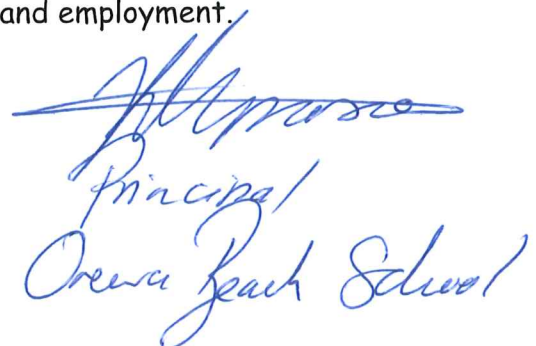 and employment.
Principal
Orewa Beach School